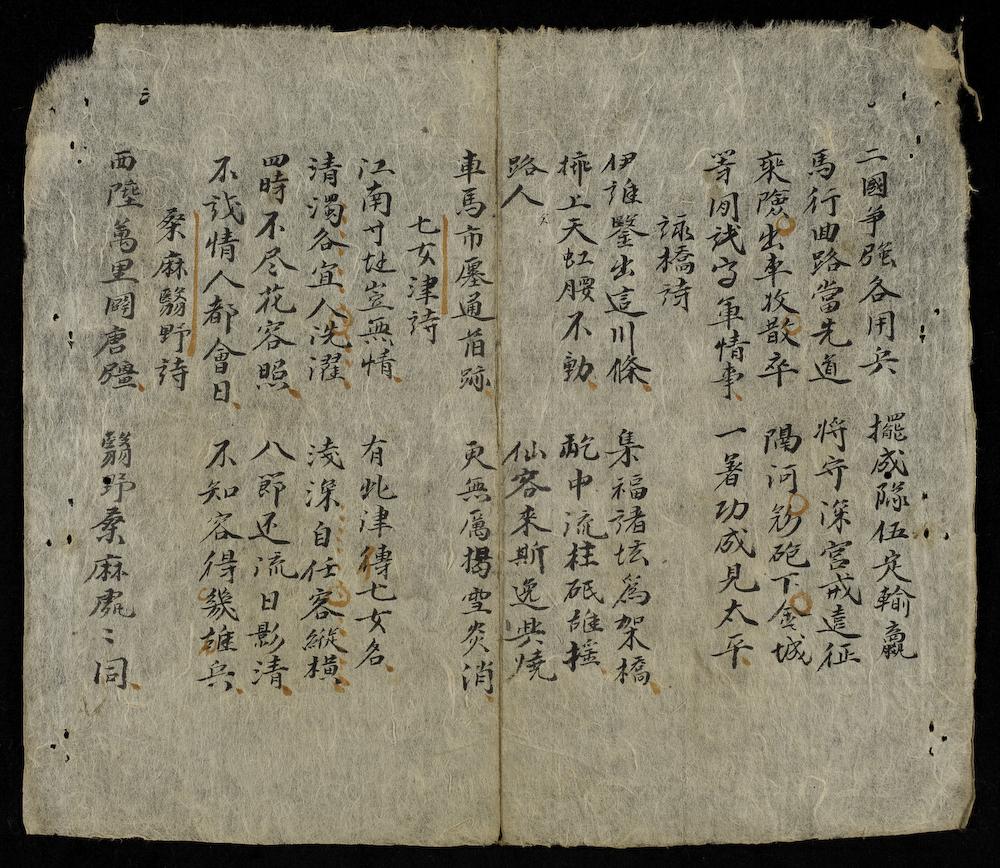 二國爭強各用兵 擺成隊伍定輸贏
馬行曲路當先道 將守深宮戒遠征
乘險出車收散卒 隔河飛砲下金城
等閑識字軍情事 一著功成見太平
詠橋詩
伊誰鑿出這川條 集福諸坛為架橋
排上天虹腰不動 屹中流柱砥雄搖
路人 仙客來斯逸興燒
車馬市廛通着跡 更無厲揭雪炎消
七女津詩
江南寸地豈無情 有此津傳七女名
清濁各宜人洗濯 淺深自任客縱橫
四時不尽花容照 八節还流日影清
不識情人都會日 不知容得幾雄兵
桑麻翳野詩
西陸萬里闢唐疆 翳野桑麻處〻同